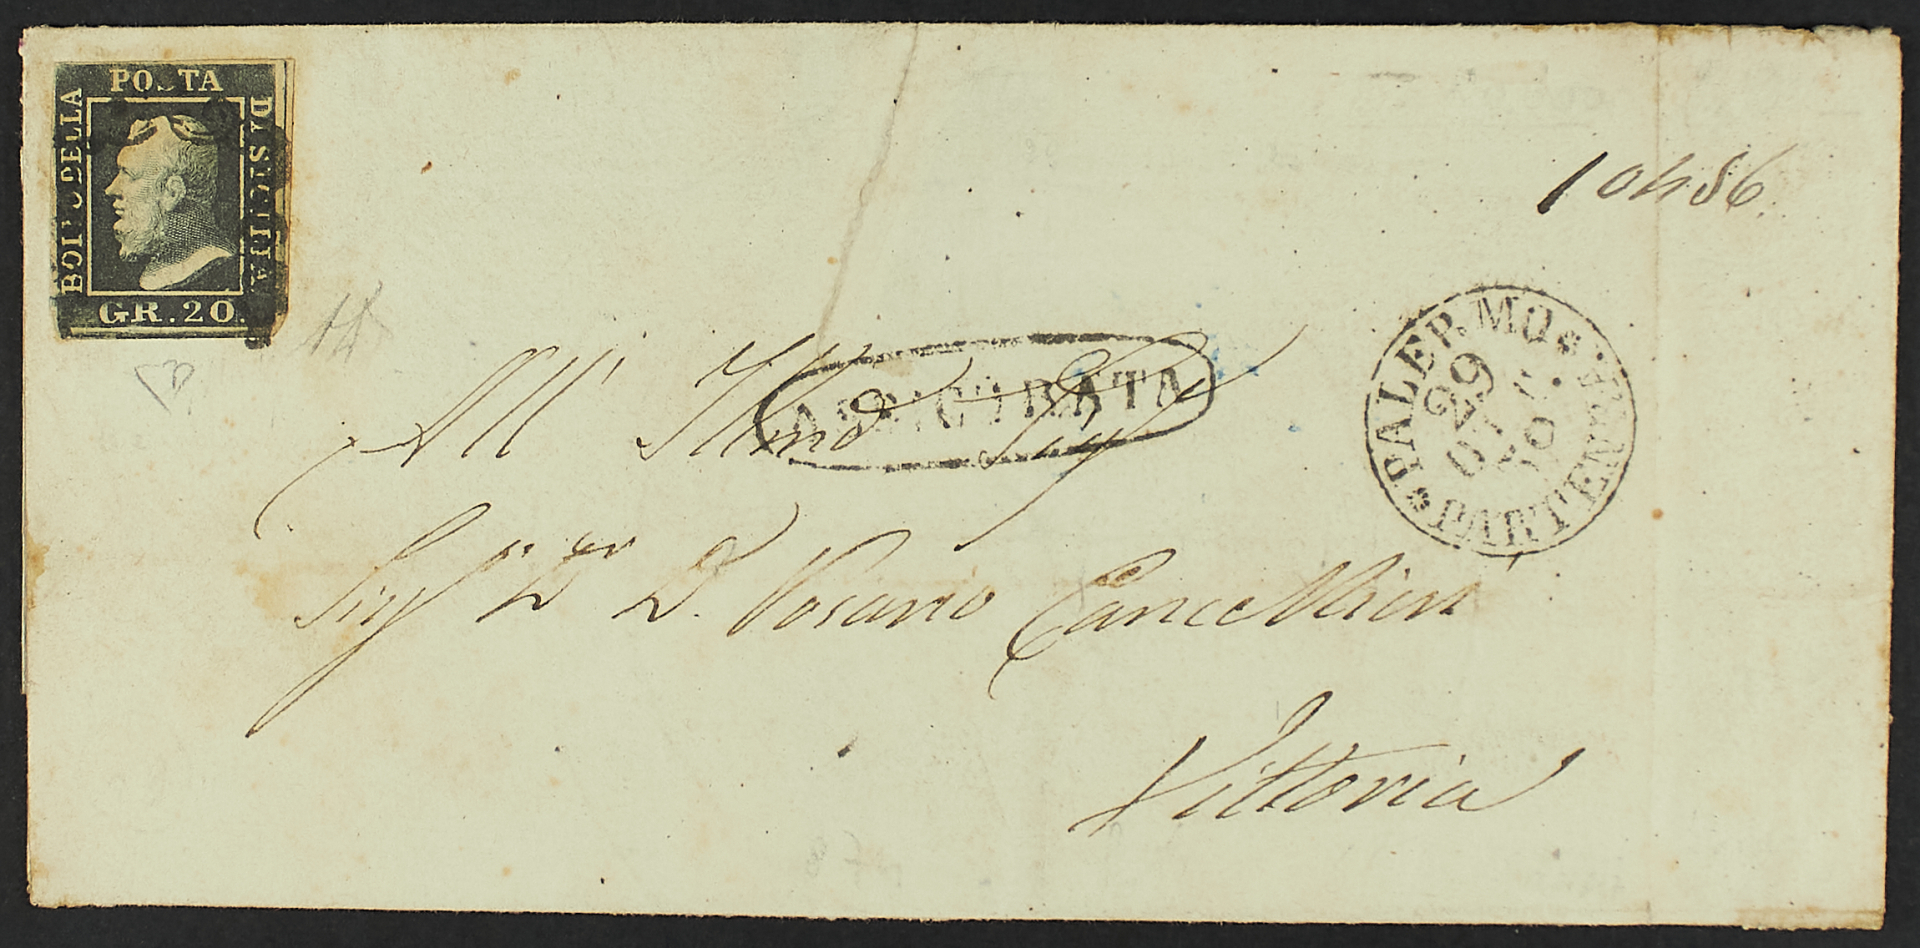 POSTA
BOLLO DELLA
DI SICILIA
GR. 20.
10486.
ASSICURATA
*PALERMO*
PARTENZA
29
All' Illmo Sig
Sig D. Rosario Cancellieri
Vittoria